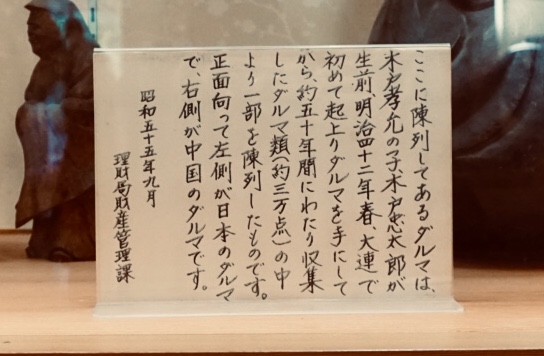 ここに陳列してあるダルマは、
木戸孝允の子木戸忠太郎が
生前、明治四十二年春、大連で
初めて起上りダルマを手にして
から、約五十年間にわたり収集
したダルマ類(約三万点)の中
より一部を陳列したものです。
正面向って左側が日本のダルマ
で、右側が中国のダルマです。
昭和五十五年九月
理財局財産管理課